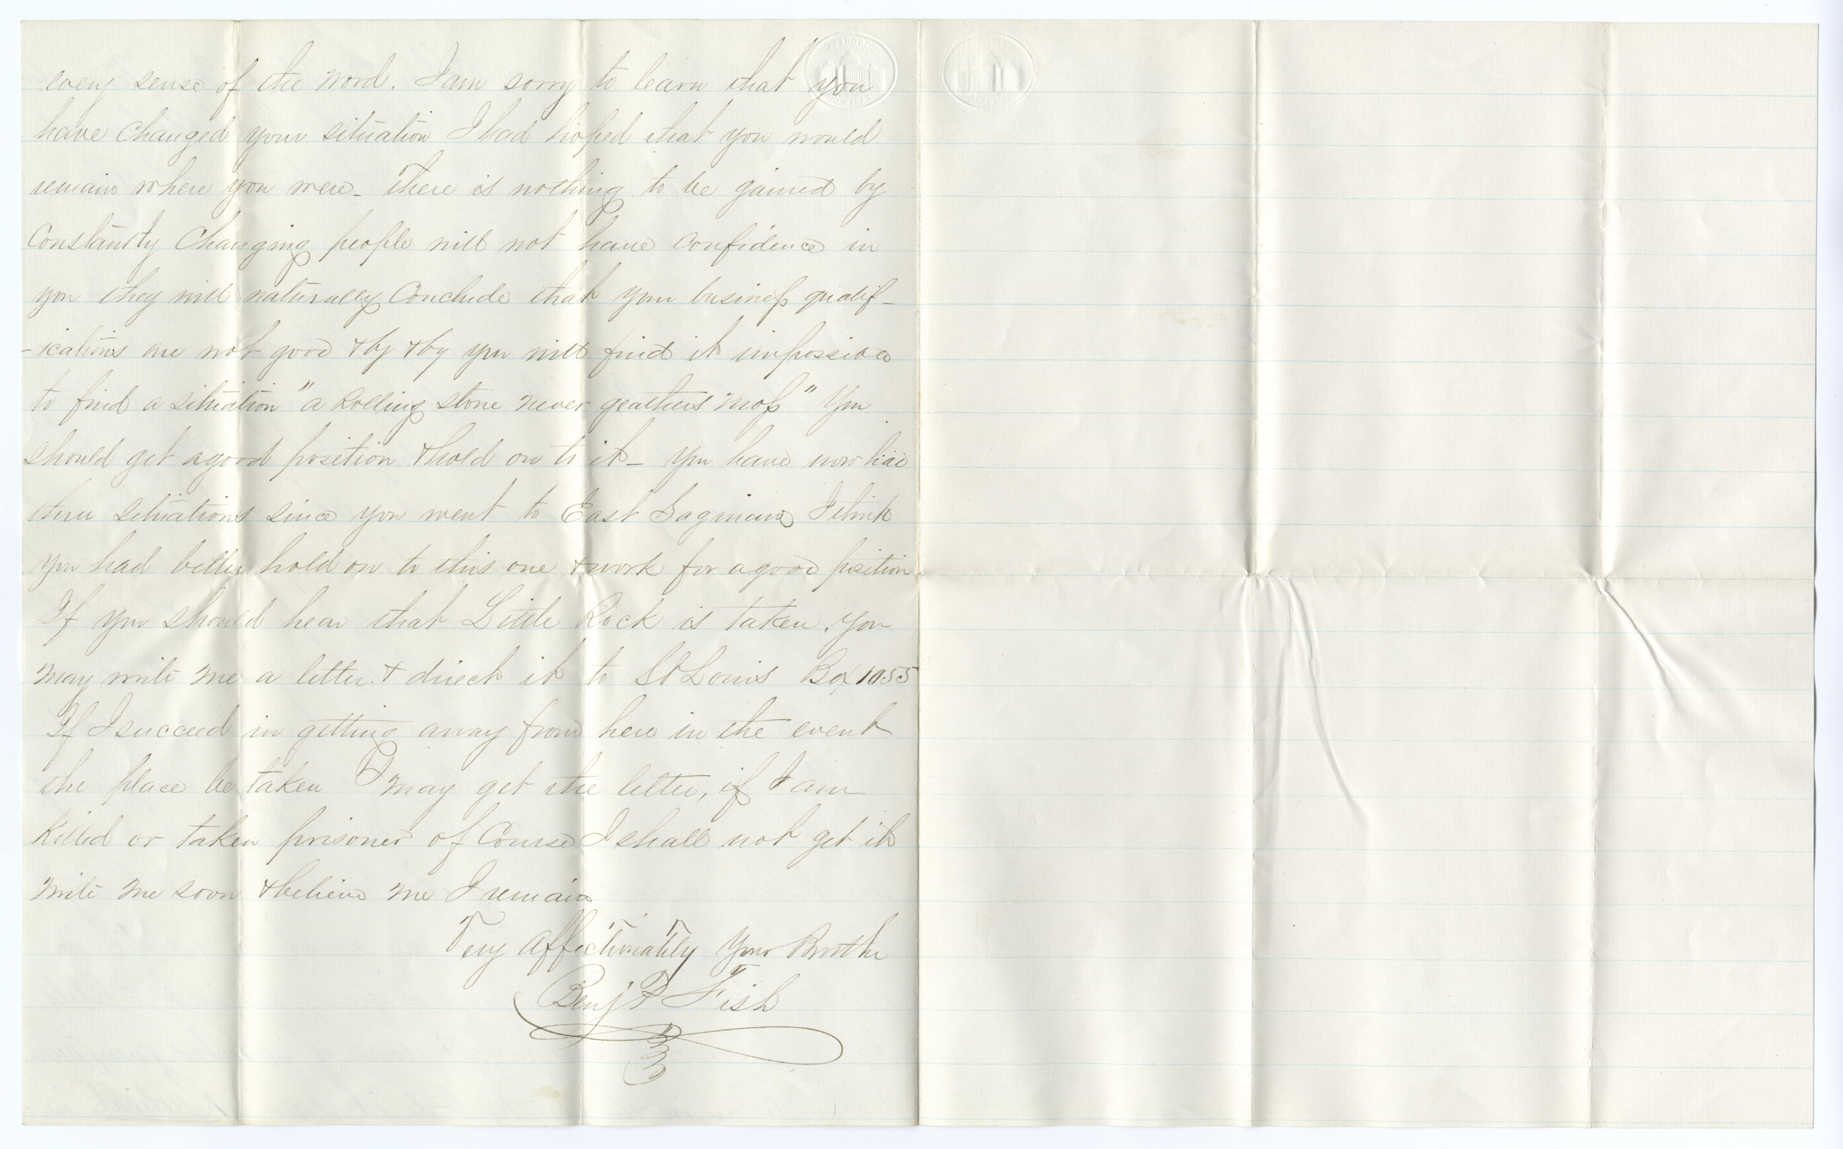 every sense of the word. I am sorry to learn that you
have changed your situation I had hoped that you would
remain where you were - there is nothing to be gained by
Constantly Changing people will not have Confidence in
you they will naturally Conclude that your business qualif-
-ications are not good & by & by you will find it impossible
to find a situation "a Rolling stone never geathers moss" You
should get a good position & hold on to it - you have now had
three situations since you went to East Saginaw I think
you had better hold on to this one & work for a good position
If you should hear that Little Rock is taken. you
may write me a letter & direct it to St Louis Box 1055
If I succeed in getting away from here in the event
the place be taken I may get the letter, if I am
killed or taken prisoner of Course I shall not get it
write me soon & believe me I remain
Very affectionately Your Brother
Benj F Fish